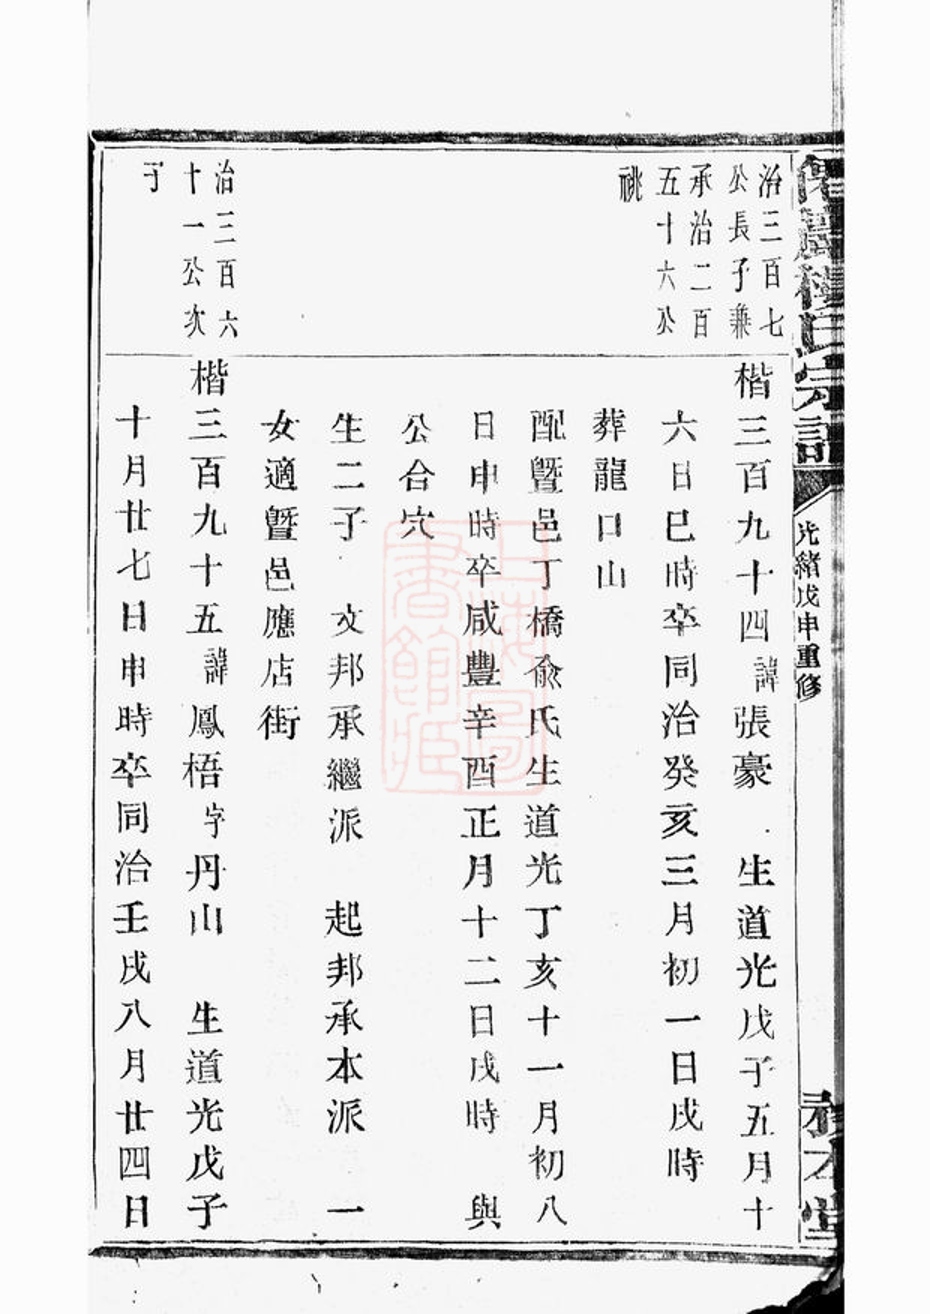 樓氏宗譜
光緒戊申重修
本堂
治三百七
公長子兼
承治二百
五十六公
祧
楷三百九十四諱張豪 生道光戊子五月十
六日巳時卒同治癸亥三月初一日戌時
葬龍口山
配暨邑丁橋俞氏生道光丁亥十一月初八
日申時卒咸豐辛酉正月十二日戌時 與
公合穴
生二子 文邦承繼派 起邦承本派 一
女適暨邑應店街
治三百六
十一公次
子
楷三百九十五諱鳳梧字丹山 生道光戊子
十月廿七日申時卒同治壬戌八月廿四日
上海圖
書館藏